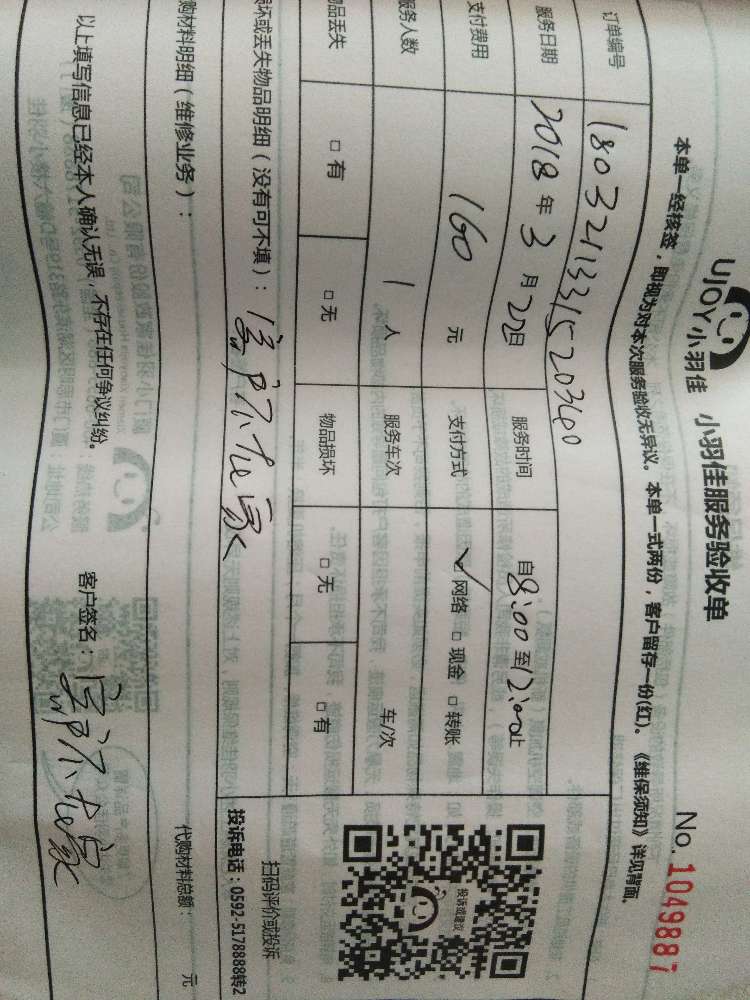 UJOY小羽佳 小羽佳服务验收单
No. 1049887
本单一经核签，即视为对本次服务验收无异议。本单一式两份，客户留存一份(红)。《维保须知》详见背面。
订单编号 180321331520340
服务日期 2018年3月22日 服务时间 自8:00至12:00止
支付费用 160元 支付方式 ☑网络 □现金 □转账
服务人数 1人 服务车次 车/次
物品丢失 □有 □无 物品损坏 □无 □有
损坏或丢失物品明细（没有可不填）：
购材料明细（维修业务）：
代购材料总额： 元
投诉或建议
扫码评价或投诉
投诉电话：0592-5178888转2
以上填写信息已经本人确认无误，不存在任何争议纠纷。
客户签名：